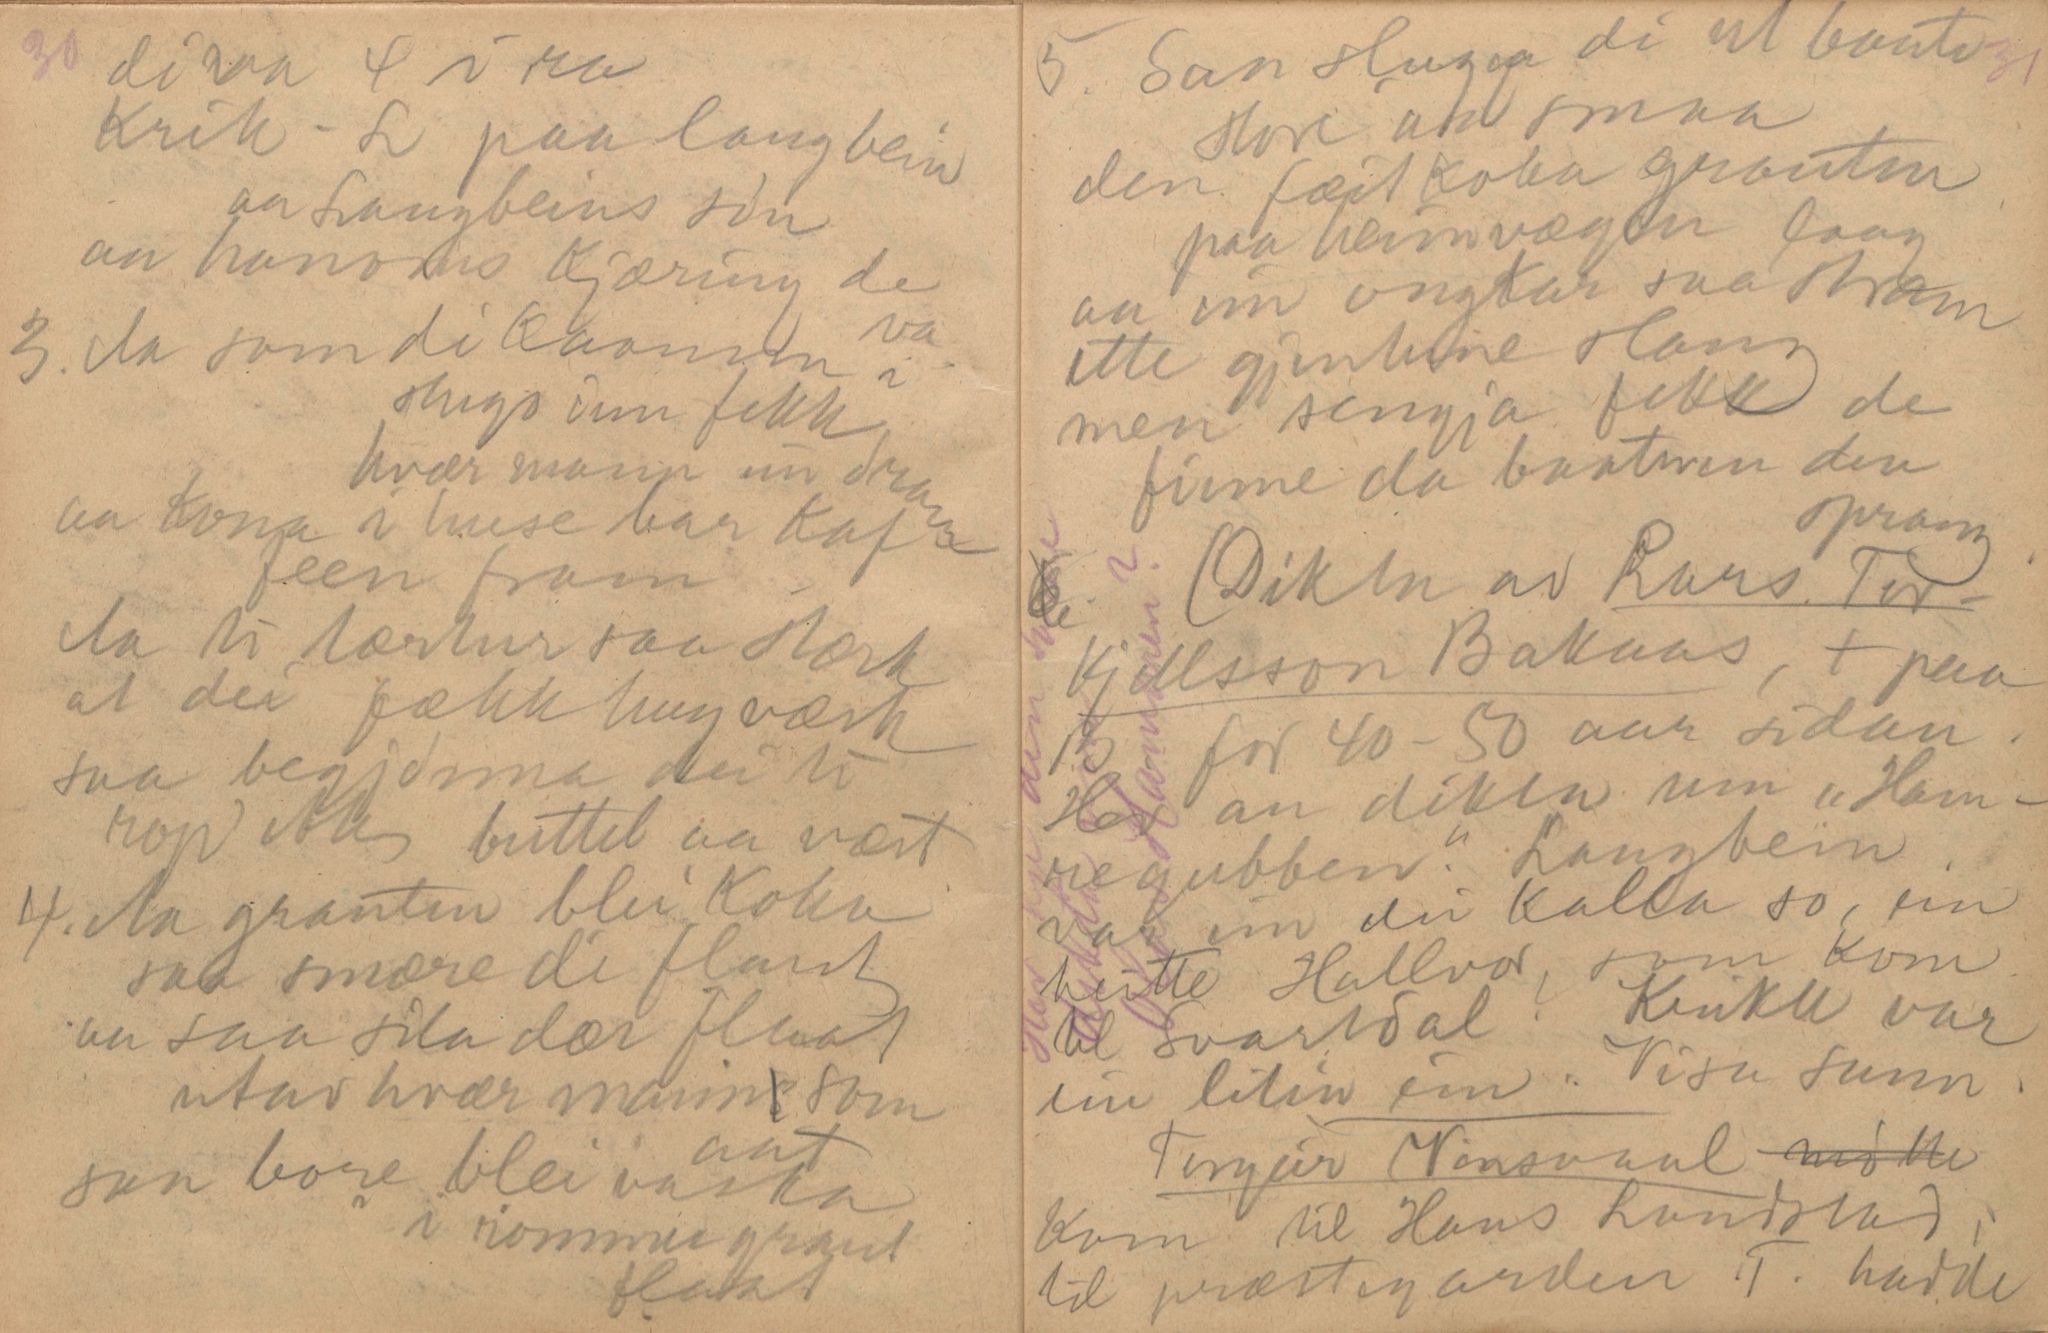 30
di va 4 i ra
Krik-L paa langbein
aa Langbeins sön
aa honoms Kjæring de va
3. Aa som di kaamm i
stugo inn fekk
hvær mann ein dram
aa Kona i huse bar Kaf-
feen fram
Aa ti tærtur saa stærk
at dei fækk hugværk
saa begjönna dei ti
rop buttel aa væst
4. Aa grauten blei Koka
saa smøre di flaut
aa saa sila dær flaat
utav hvær mann som
san bore blei vaska aat
i rommegraut
flaat
31
5. San stugga di ut baate
store aa smaa
den feit koka grauten
paa heimvægen laag
aa ein ungkar saa stram
ette gjentune slang
men sengja fekk de
finne da baatnen den
sprang
(Dikta av Lars Tor-
Kjellsson Bakaas, + paa
for 40-50 aar sidan.
Han dikta um "Ham-
regubben". Langbein
var ein dei kalla so, ein
heitte Hallvor, som kom
til Svartdal. Krikk var
ein liten ein. Visa sann.
Torgeir Vinsvaal møtte
kom til Hans Landstad,
til præstegarden T. hadde